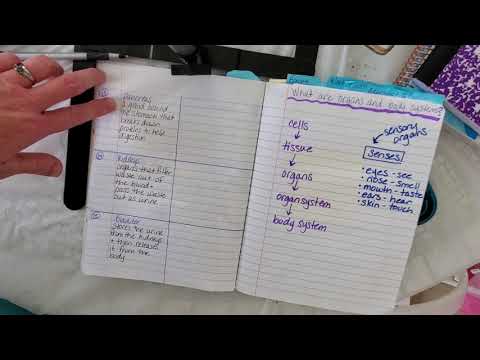 Pancreas
a gland behind
the stomach that
breaks down
digestion
Kidneys
organs that filter
waste out of
the blood +
pass the waste
out as urine
Bladder
stores the urine
from the kidneys
+ then releases
it from the
body
What are organs and body systems
cells
tissue
organs
organ system
body system
sensory
organs
senses
• eyes - see
• nose - smell
• mouth - taste
• ears - hear
• skin - touch